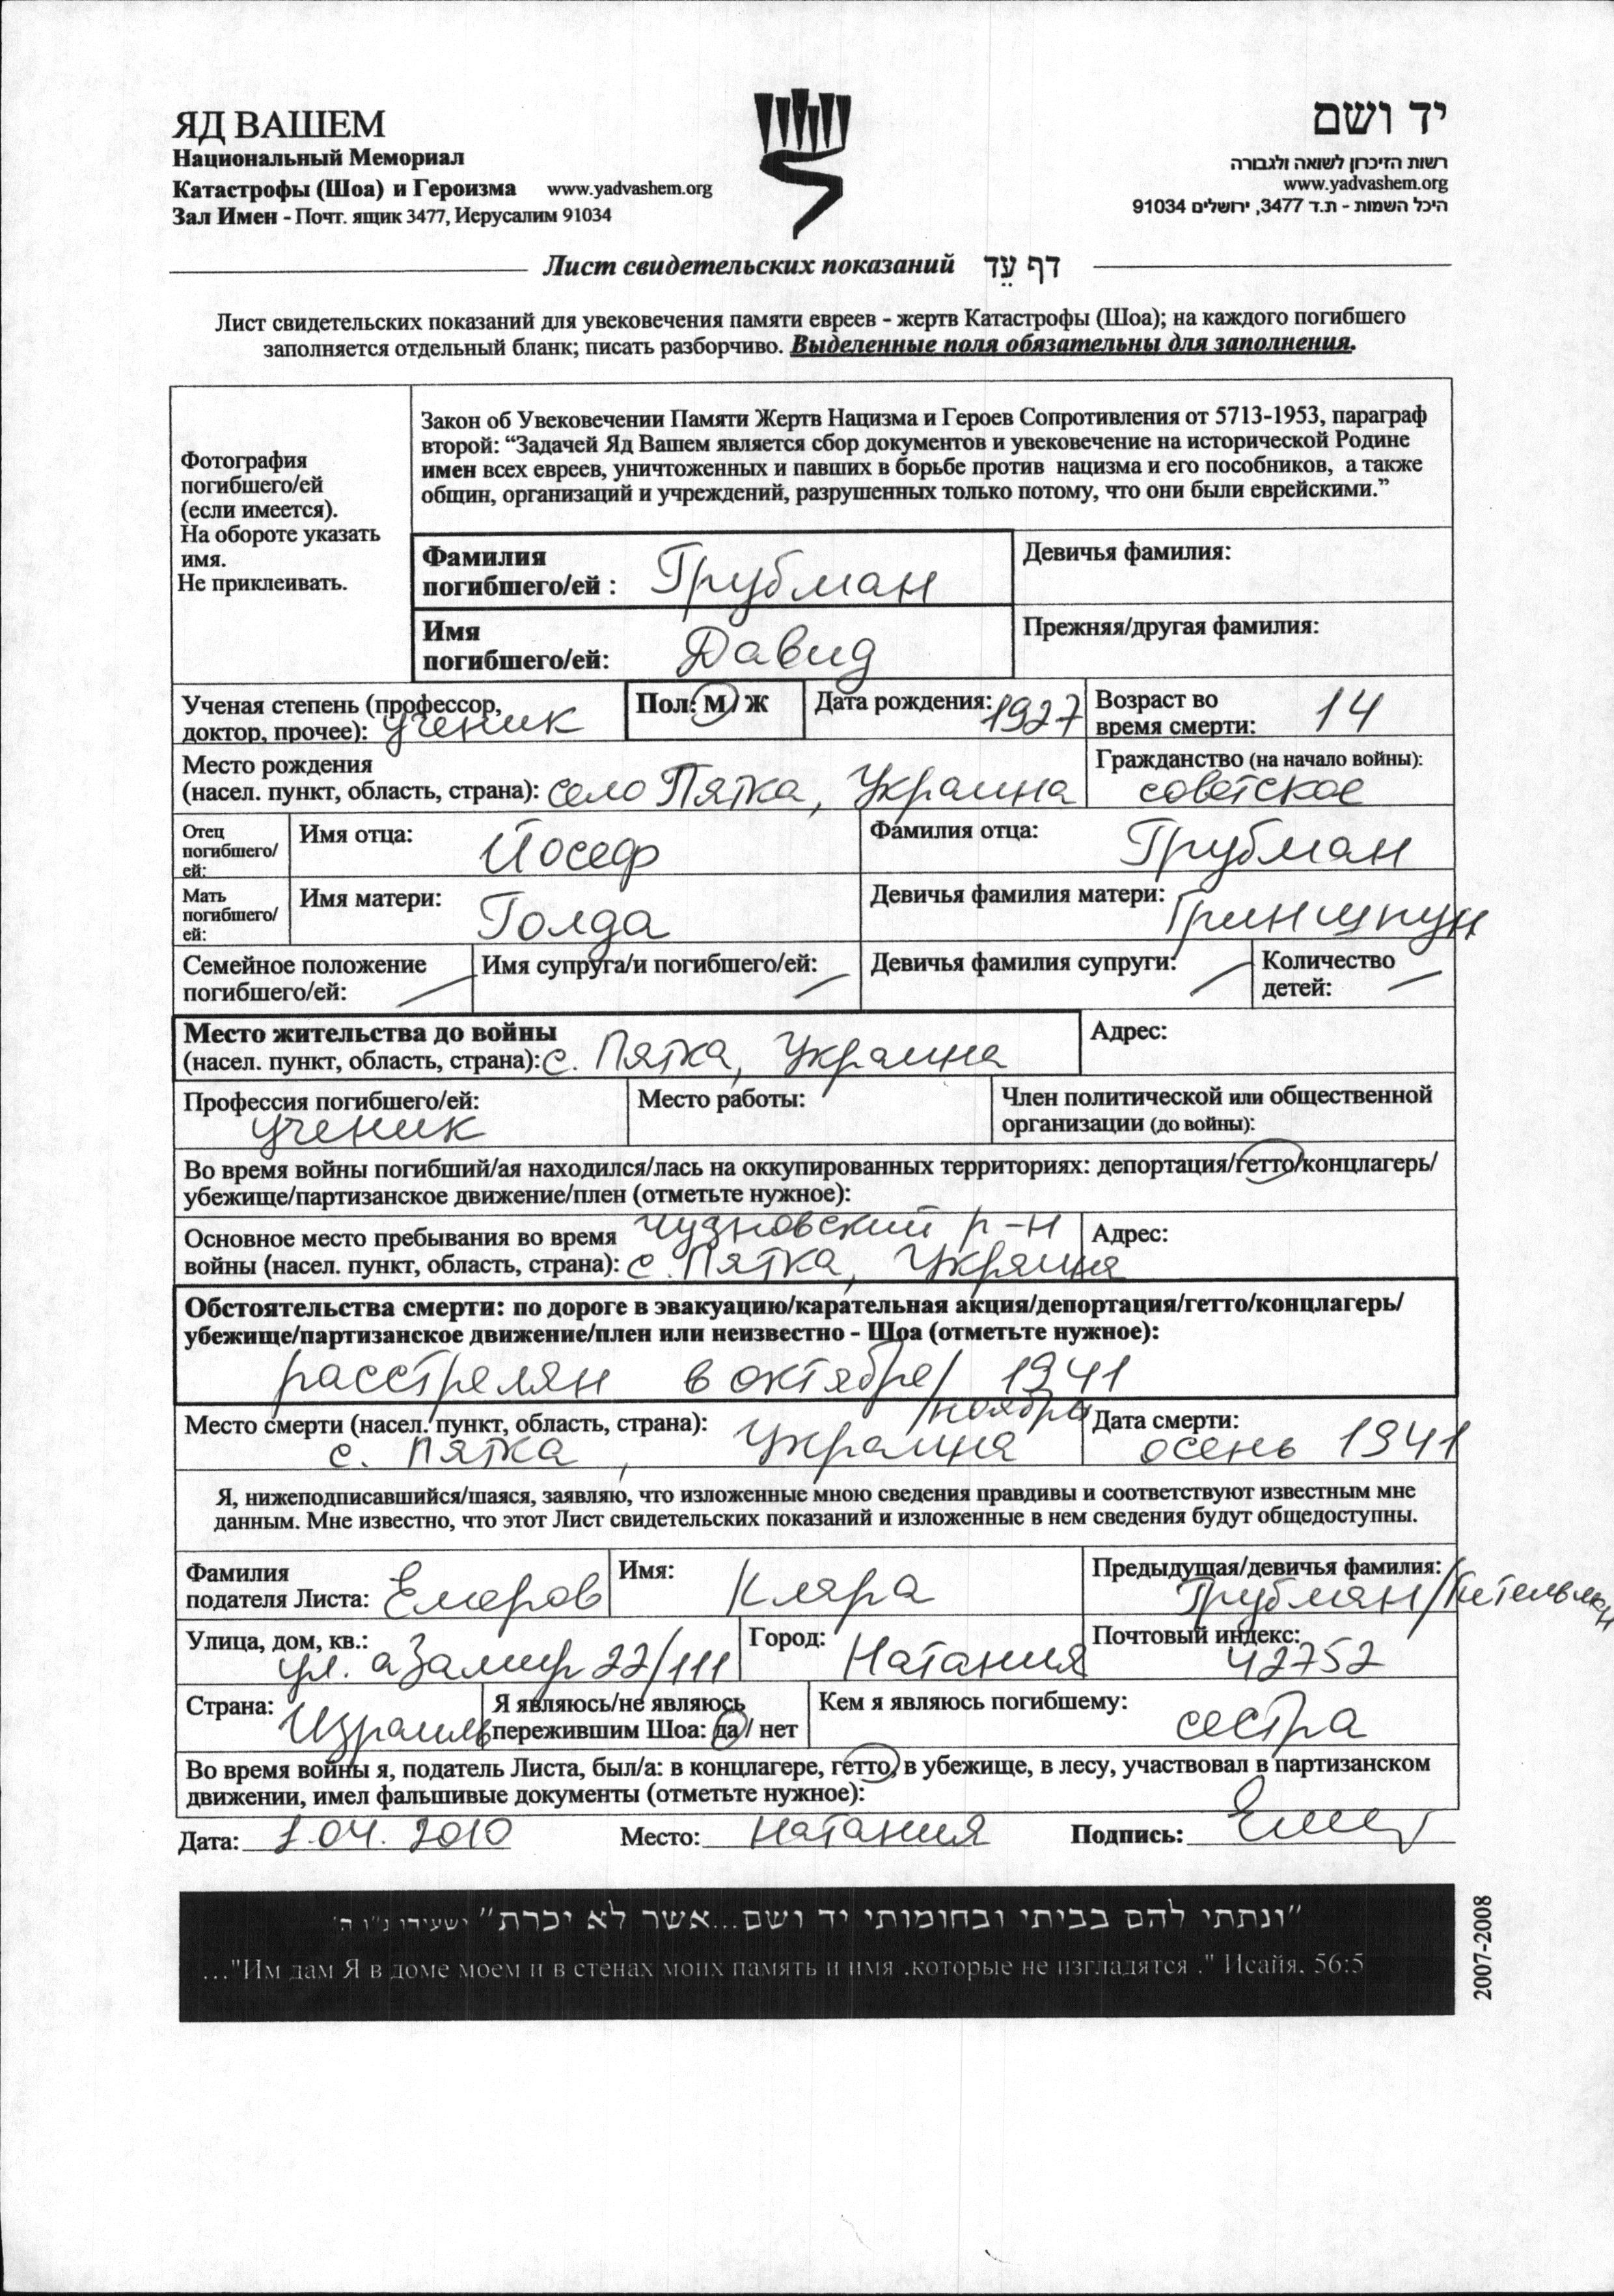 ЯД ВАШЕМ
Национальный Мемориал
Катастрофы (Шоа) и Героизма www.yadvashem.org
Зал Имен - Почт. ящик 3477, Иерусалим 91034
יד ושם
רשות הזיכרון לשואה ולגבורה
www.yadvashem.org
היכל השמות - ת.ד 3477, ירושלים 91034
Лист свидетельских показаний דף עֵד
Лист свидетельских показаний для увековечения памяти евреев - жертв Катастрофы (Шоа); на каждого погибшего
заполняется отдельный бланк; писать разборчиво. Выделенные поля обязательны для заполнения.
Фотография
погибшего/ей
(если имеется).
На обороте указать
имя.
Не приклеивать.
Закон об Увековечении Памяти Жертв Нацизма и Героев Сопротивления от 5713-1953, параграф
второй: “Задачей Яд Вашем является сбор документов и увековечение на исторической Родине
имен всех евреев, уничтоженных и павших в борьбе против нацизма и его пособников, а также
общин, организаций и учреждений, разрушенных только потому, что они были еврейскими.”
Фамилия
погибшего/ей : Грубман
Девичья фамилия:
Имя
погибшего/ей: Давид
Прежняя/другая фамилия:
Ученая степень (профессор,
доктор, прочее): ученик
Пол: М / Ж
Дата рождения: 1927
Возраст во
время смерти: 14
Место рождения
(насел. пункт, область, страна): село Пятка, Украина
Гражданство (на начало войны):
советское
Отец
погибшего/
ей:
Имя отца: Йосеф
Фамилия отца: Грубман
Мать
погибшего/
ей:
Имя матери: Голда
Девичья фамилия матери: Гриншпун
Семейное положение
погибшего/ей:
Имя супруга/и погибшего/ей:
Девичья фамилия супруги:
Количество
детей:
Место жительства до войны
(насел. пункт, область, страна): с. Пятка, Украина
Адрес:
Профессия погибшего/ей:
ученик
Место работы:
Член политической или общественной
организации (до войны):
Во время войны погибший/ая находился/лась на оккупированных территориях: депортация/гетто/концлагерь/
убежище/партизанское движение/плен (отметьте нужное):
Основное место пребывания во время Чудновский р-н
войны (насел. пункт, область, страна): с. Пятка, Украина
Адрес:
Обстоятельства смерти: по дороге в эвакуацию/карательная акция/депортация/гетто/концлагерь/
убежище/партизанское движение/плен или неизвестно - Шоа (отметьте нужное):
расстрелян в октябре/ 1941
/ноябрь
Место смерти (насел. пункт, область, страна):
с. Пятка, Украина
Дата смерти:
осень 1941
Я, нижеподписавшийся/шаяся, заявляю, что изложенные мною сведения правдивы и соответствуют известным мне
данным. Мне известно, что этот Лист свидетельских показаний и изложенные в нем сведения будут общедоступны.
Фамилия
подателя Листа: Емеров
Имя: Кляра
Предыдущая/девичья фамилия:
Грубман/
Улица, дом, кв.:
ул. аЗамир 22/111
Город: Натания
Почтовый индекс:
42752
Страна: Израиль
Я являюсь/не являюсь
пережившим Шоа: да / нет
Кем я являюсь погибшему:
сестра
Во время войны я, податель Листа, был/а: в концлагере, гетто, в убежище, в лесу, участвовал в партизанском
движении, имел фальшивые документы (отметьте нужное):
Дата: 1.04.2010 Место: Натания Подпись:
"ונתתי להם בביתי ובחומותי יד ושם...אשר לא יכרת" ישעיהו נ"ו ה'
..."Им дам Я в доме моем и в стенах моих память и имя ,которые не изгладятся ." Исайя, 56:5
2007-2008